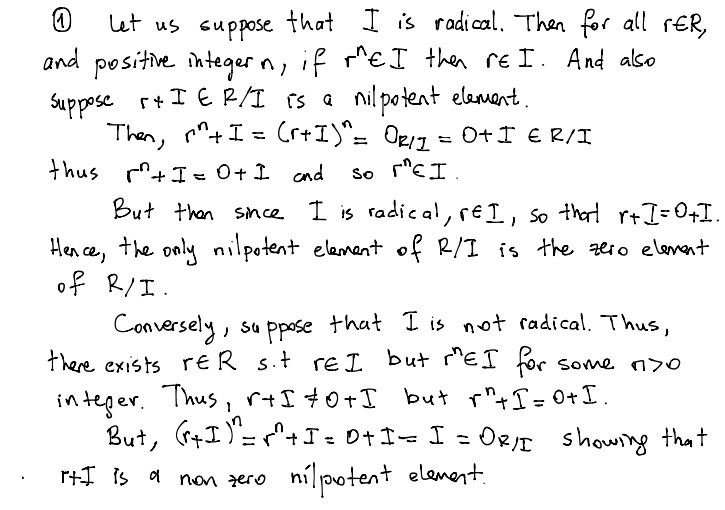 ① Let us suppose that I is radical. Then for all r∈R,
and positive integer n, if rⁿ∈I then r∈I. And also
suppose r+I ∈ R/I is a nilpotent element.
Then, rⁿ+I = (r+I)ⁿ = 0_{R/I} = 0+I ∈ R/I
thus rⁿ+I = 0+I and so rⁿ∈I.
But then since I is radical, r∈I, so that r+I=0+I.
Hence, the only nilpotent element of R/I is the zero element
of R/I.
Conversely, suppose that I is not radical. Thus,
there exists r∈R s.t r∈I but rⁿ∈I for some n>0
integer. Thus, r+I ≠ 0+I but rⁿ+I = 0+I.
But, (r+I)ⁿ = rⁿ+I = 0+I = I = 0_{R/I} showing that
r+I is a non zero nilpotent element.